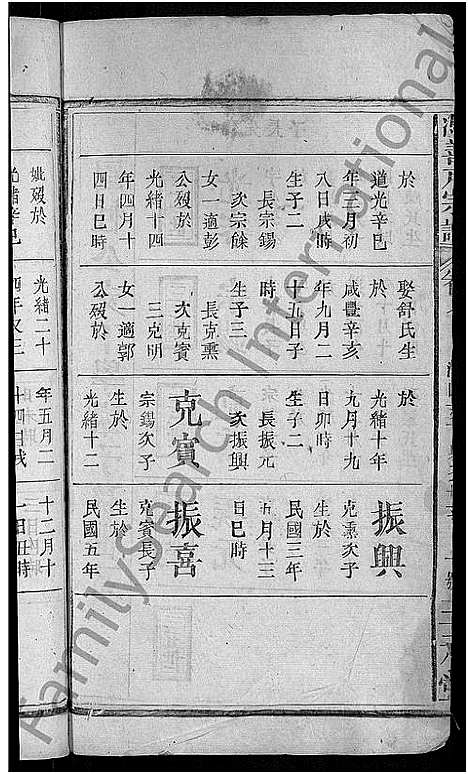 於
道光辛邑
年三月初
八日戌時
生子二
長宗錫
次宗餘
女一適彭
公歿於
光緒十四
年四月十
四日巳時
娶舒氏生
於
咸豐辛亥
年九月二
十五日子
生子三
長克熏
次克賓
三克明
女一適郭
公歿於
於
光緒十年
九月十九
日卯時
生子二
長振元
次振興
克賓
宗錫次子
生於
光緒十二
振興
克熏次子
生於
民國三年
五月十三
日巳時
振喜
克賓長子
生於
民國五年
妣歿於
光緒辛邑
光緒二十
四年又三
年五月二
十四日戌
十二月十
一日丑時
FamilySearch International